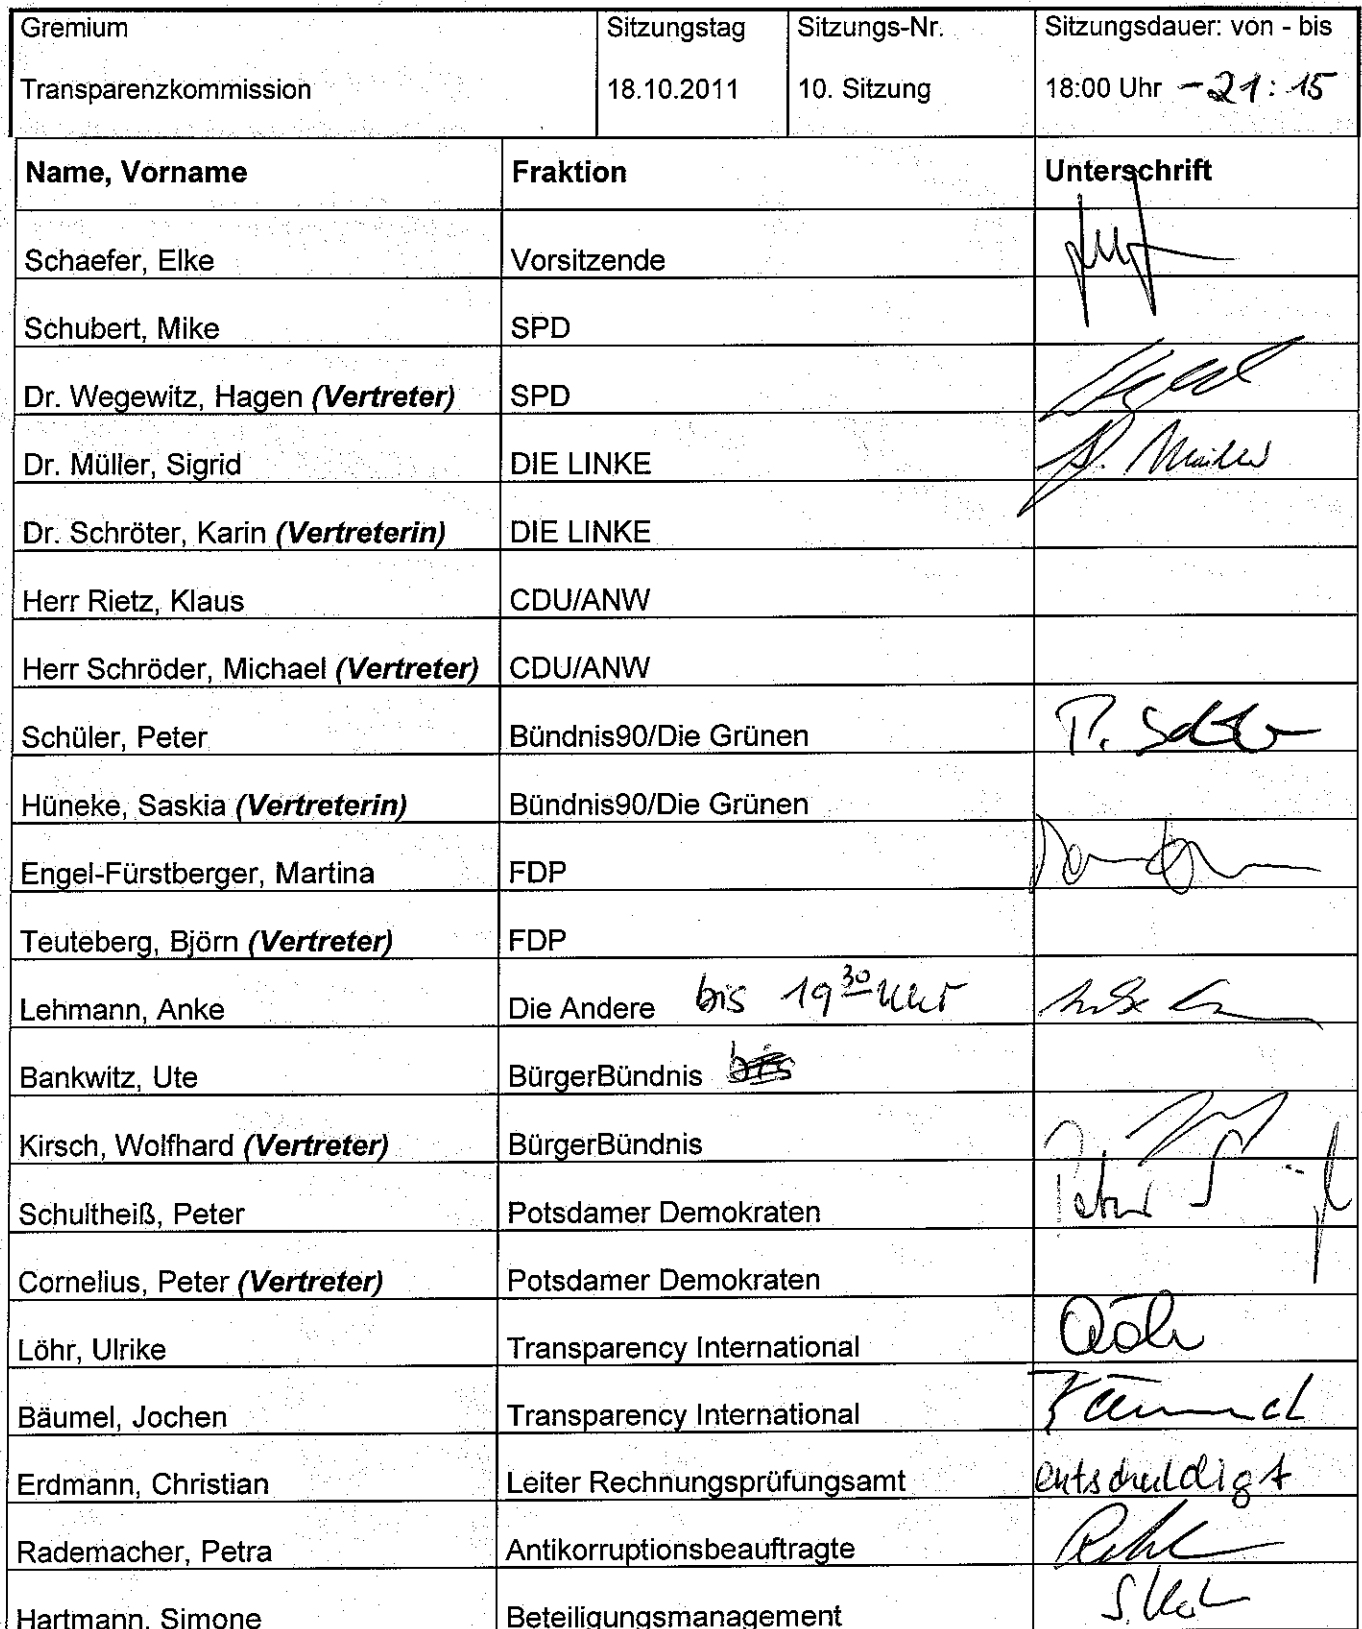 Gremium Sitzungstag Sitzungs-Nr. Sitzungsdauer: von - bis
Transparenzkommission 18.10.2011 10. Sitzung 18:00 Uhr - 21:15
Name, Vorname Fraktion Unterschrift
Schaefer, Elke Vorsitzende
Schubert, Mike SPD
Dr. Wegewitz, Hagen (Vertreter) SPD
Dr. Müller, Sigrid DIE LINKE S. Müller
Dr. Schröter, Karin (Vertreterin) DIE LINKE
Herr Rietz, Klaus CDU/ANW
Herr Schröder, Michael (Vertreter) CDU/ANW
Schüler, Peter Bündnis90/Die Grünen
Hüneke, Saskia (Vertreterin) Bündnis90/Die Grünen
Engel-Fürstberger, Martina FDP
Teuteberg, Björn (Vertreter) FDP
Lehmann, Anke Die Andere bis 19³⁰ Uhr
Bankwitz, Ute BürgerBündnis
Kirsch, Wolfhard (Vertreter) BürgerBündnis
Schultheiß, Peter Potsdamer Demokraten Peter
Cornelius, Peter (Vertreter) Potsdamer Demokraten
Löhr, Ulrike Transparency International
Bäumel, Jochen Transparency International
Erdmann, Christian Leiter Rechnungsprüfungsamt entschuldigt
Rademacher, Petra Antikorruptionsbeauftragte
Hartmann, Simone Beteiligungsmanagement